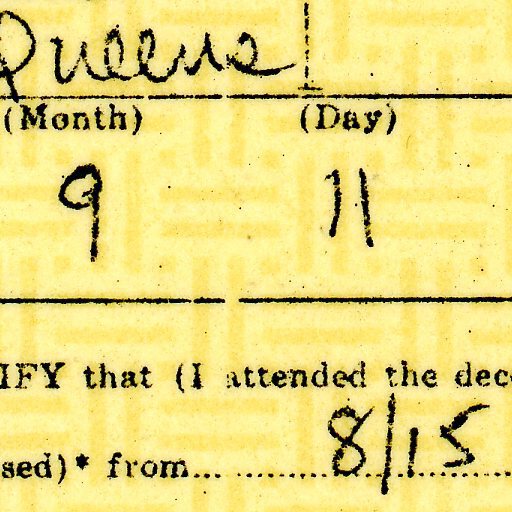 Queens
(Month) (Day)
9 11
IFY that (I attended the dec
sed)* from... ............ 8/15